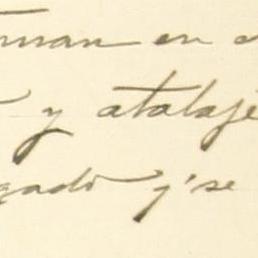 man en
y atalaje
gado y se